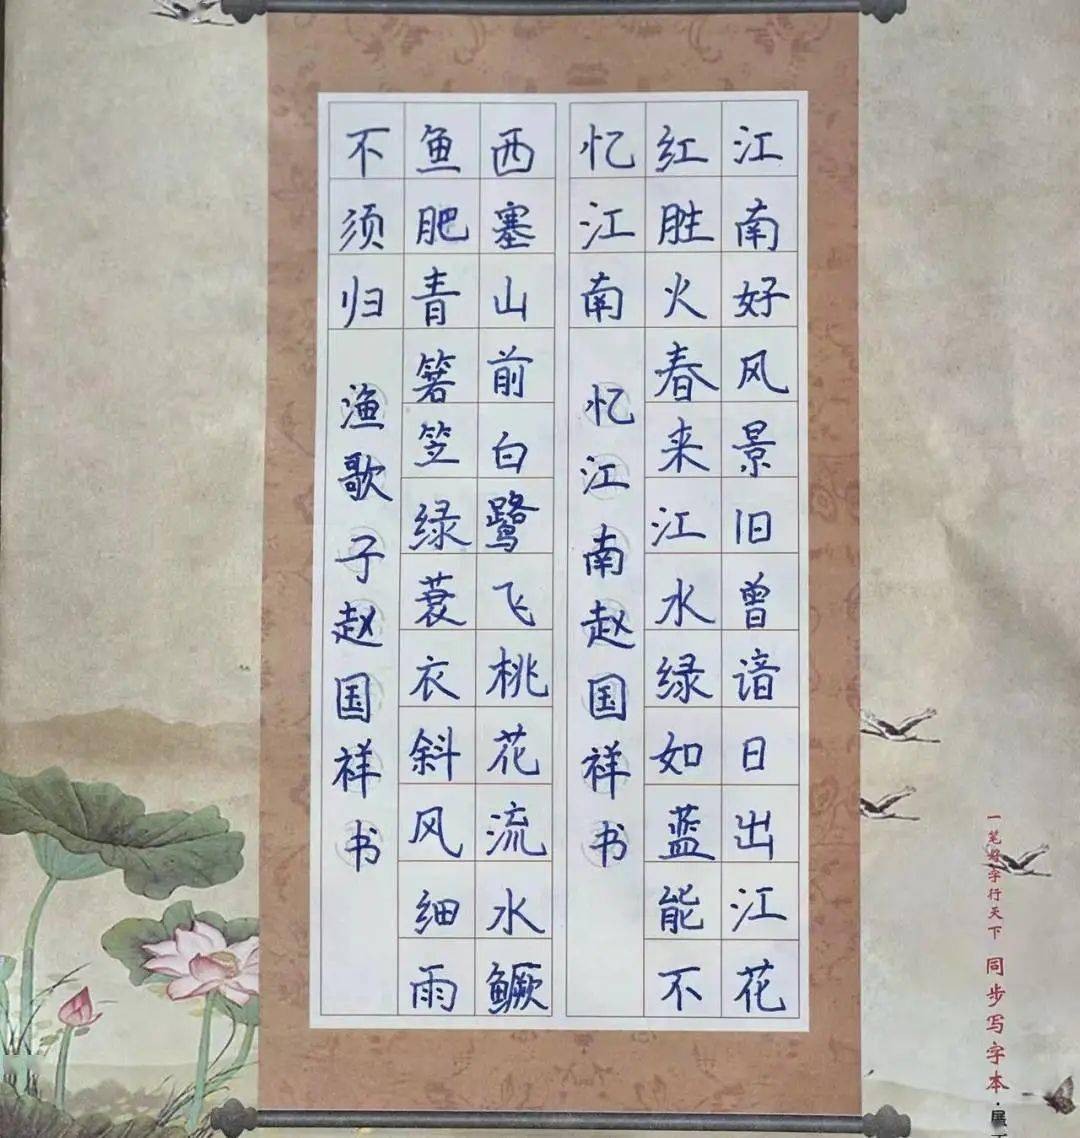 江南好风景旧曾谙日出江花
红胜火春来江水绿如蓝能不
忆江南 忆江南赵国祥书
西塞山前白鹭飞桃花流水鳜
鱼肥青箬笠绿蓑衣斜风细雨
不须归 渔歌子赵国祥书
一笔好字行天下 同步写字本·展